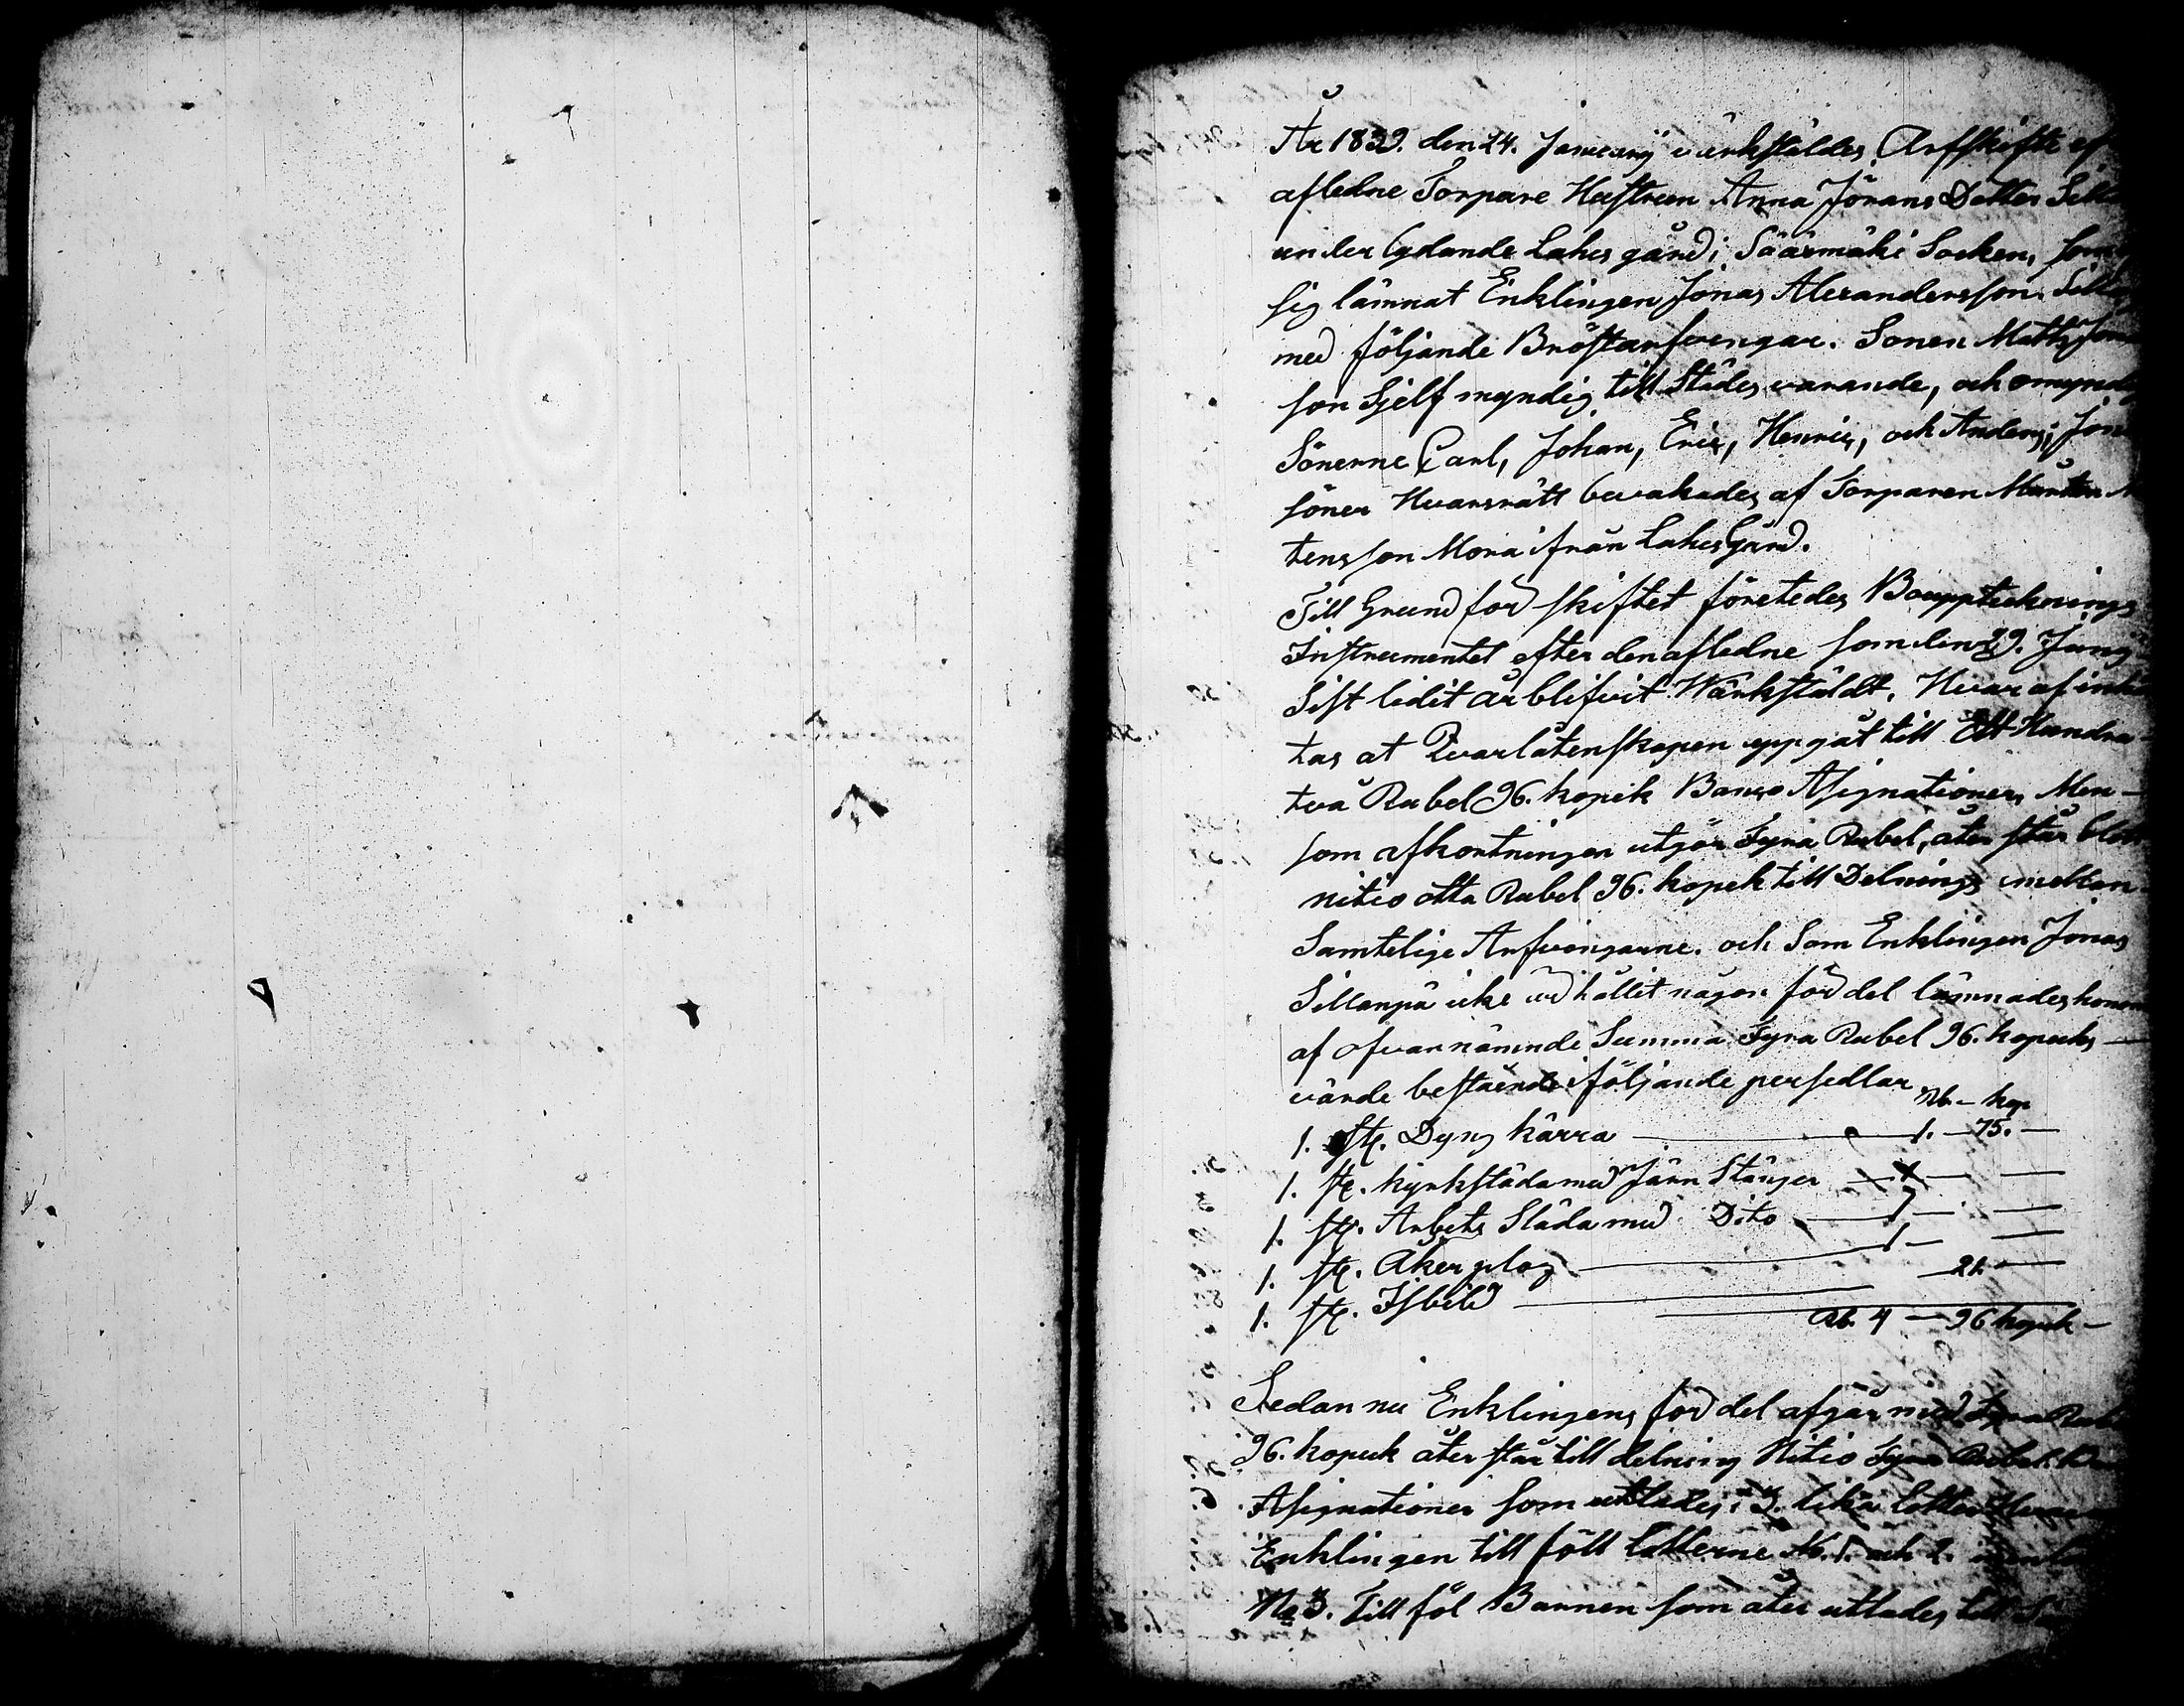 År 1839. den 24. Januarÿ värkstäldes Arfskifte ef
afledne Torpare Hustrun Anna Jörans Dotter Sill
under lydande Lahis gård i Säärmäki Socken, som
sig lämnat Enklingen Jonas Alexandersson Sillan
med följande Bröstarfvengar. Sonen Matts Jona
son Sjelf myndig till Städes varande, och omyndig
Sönerne Carl, Johan, Eric, Henric, och Anders; Jona
söner Hvarsrätt bevakades af Torparen Mårten M
tensson Mora ifrån Lahis Gård.
Till Grund för skiftet företedes Bouppteknings
Instrumentet efter den afledne som den 29. Junÿ
Sist ledit år blifvit Wärkstäldt. Hvar af inhä
tas at Qvarlåtenskapen uppgåt till Ett Hundra
två Rubel 96. kopek Banco Assignationer, Men
som afkortningen utgör Fyra Rubel, åter står blott
nitio otta Rubel 96. kopek till Delnings imellan
Samtelige Arfvongarne. och Som Enklingen Jonas
Sillanpä icke ud hållit någon för del lämnades honom
af ofvannämnde Summa Fyra Rubel 96. kopecks
värde bestående i följande persedlar
Rb. - kop
1. st. Dyng kärra — 1. — 75. —
1. st. kyrksläda med Järn Stänger — 1 — —
1. st. Arbets Släda med Dito — 1 — —
1. st. Åker plog — 1 — —
1. st. Isbild — 21. —
Rb. 4 — 96 kopek —
Sedan nu Enklingens för del afgår med Fyra Rube
96. kopeck åter står till delning Nitio Fyra Rubel
Assignationer som utlades i 3. lika lotter
Enklingen till föll Lotterne No. 1. och 2.
No 3. Till föl Barnen som åter utlades till